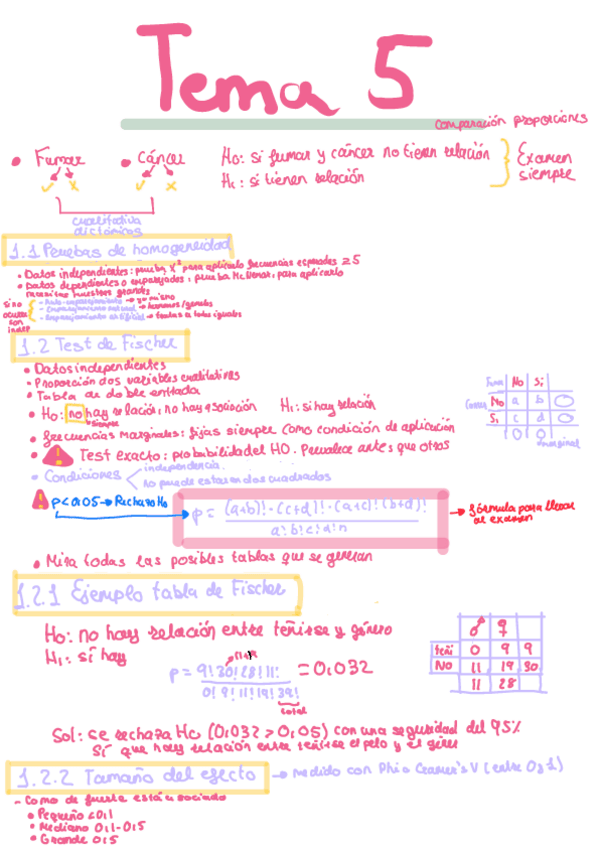 Tema 5
comparación proporciones
• Fumar • Cáncer
H0: si fumar y cáncer no tienen relación
H1: si tienen relación
Examen siempre
cualitativa
dicotómicas
1.1 Pruebas de homogeneidad
• Datos independientes: prueba X² para aplicarlo frecuencias esperadas ≥5
• Datos dependientes o emparejados, prueba McNemar, para aplicarlo
necesitas muestras grandes
si no ocurre son indep
- Auto-emparejamiento → yo mismo
- Emparejamiento natural → hermanos/gemelos
- Emparejamiento artificial → todas a todas iguales
1.2 Test de Fischer
• Datos independientes
• Proporción dos variables cualitativas
• Tabla de doble entrada
• Ho: no hay relación, no hay asociación H1: si hay relación
siempre
• frecuencias marginales: fijas siempre como condición de aplicación
• Test exacto: probabilidad del H0. Prevalece antes que otros
• Condiciones
independencia
No puede estar en dos cuadrados
Fumar No Si
Cáncer No a b
Si c d
marginal
p<0,05 → Rechazo Ho
p = (a+b)! · (c+d)! · (a+c)! (b+d)!
a! b! c! d! n
→ fórmula para llevar al examen
• Mira todas las posibles tablas que se generan
1.2.1 Ejemplo tabla de Fischer
Ho: no hay relación entre teñirse y género
H1: sí hay
p = 9! 30! 28! 11! = 0,032
0! 9! 11! 19! 39!
total
♂ ♀
teñi 0 9 9
No 11 19 30
11 28
Sol: se rechaza Ho (0,032 > 0,05) con una seguridad del 95%
Sí que hay relación entre teñirse el pelo y el géner
1.2.2 Tamaño del efecto → medido con Phi o Cramer's V (entre 0 y 1)
- Como de fuerte está asociado
• Pequeño <0,1
• Mediano 0,1-0,5
• Grande 0,5